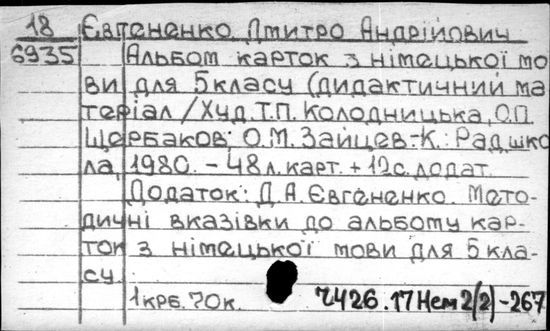 18 Євгененко Дмитро Андрійович
6935 Альбом карток з німецької мо
ви для 5 класу (дидактичний ма
теріал / Худ. Т.П. Колодницька, О.П.
Щербаков; О.М. Зайцев.-К.: Рад.шко
ла, 1980. – 48л. карт. + 12с. додат.
Додаток: Д.А. Євгененко. Мето-
дичні вказівки до альбому кар-
ток з німецької мови для 5 кла-
су.
1крб. 70к. Ч426.17Нем2(2)-267